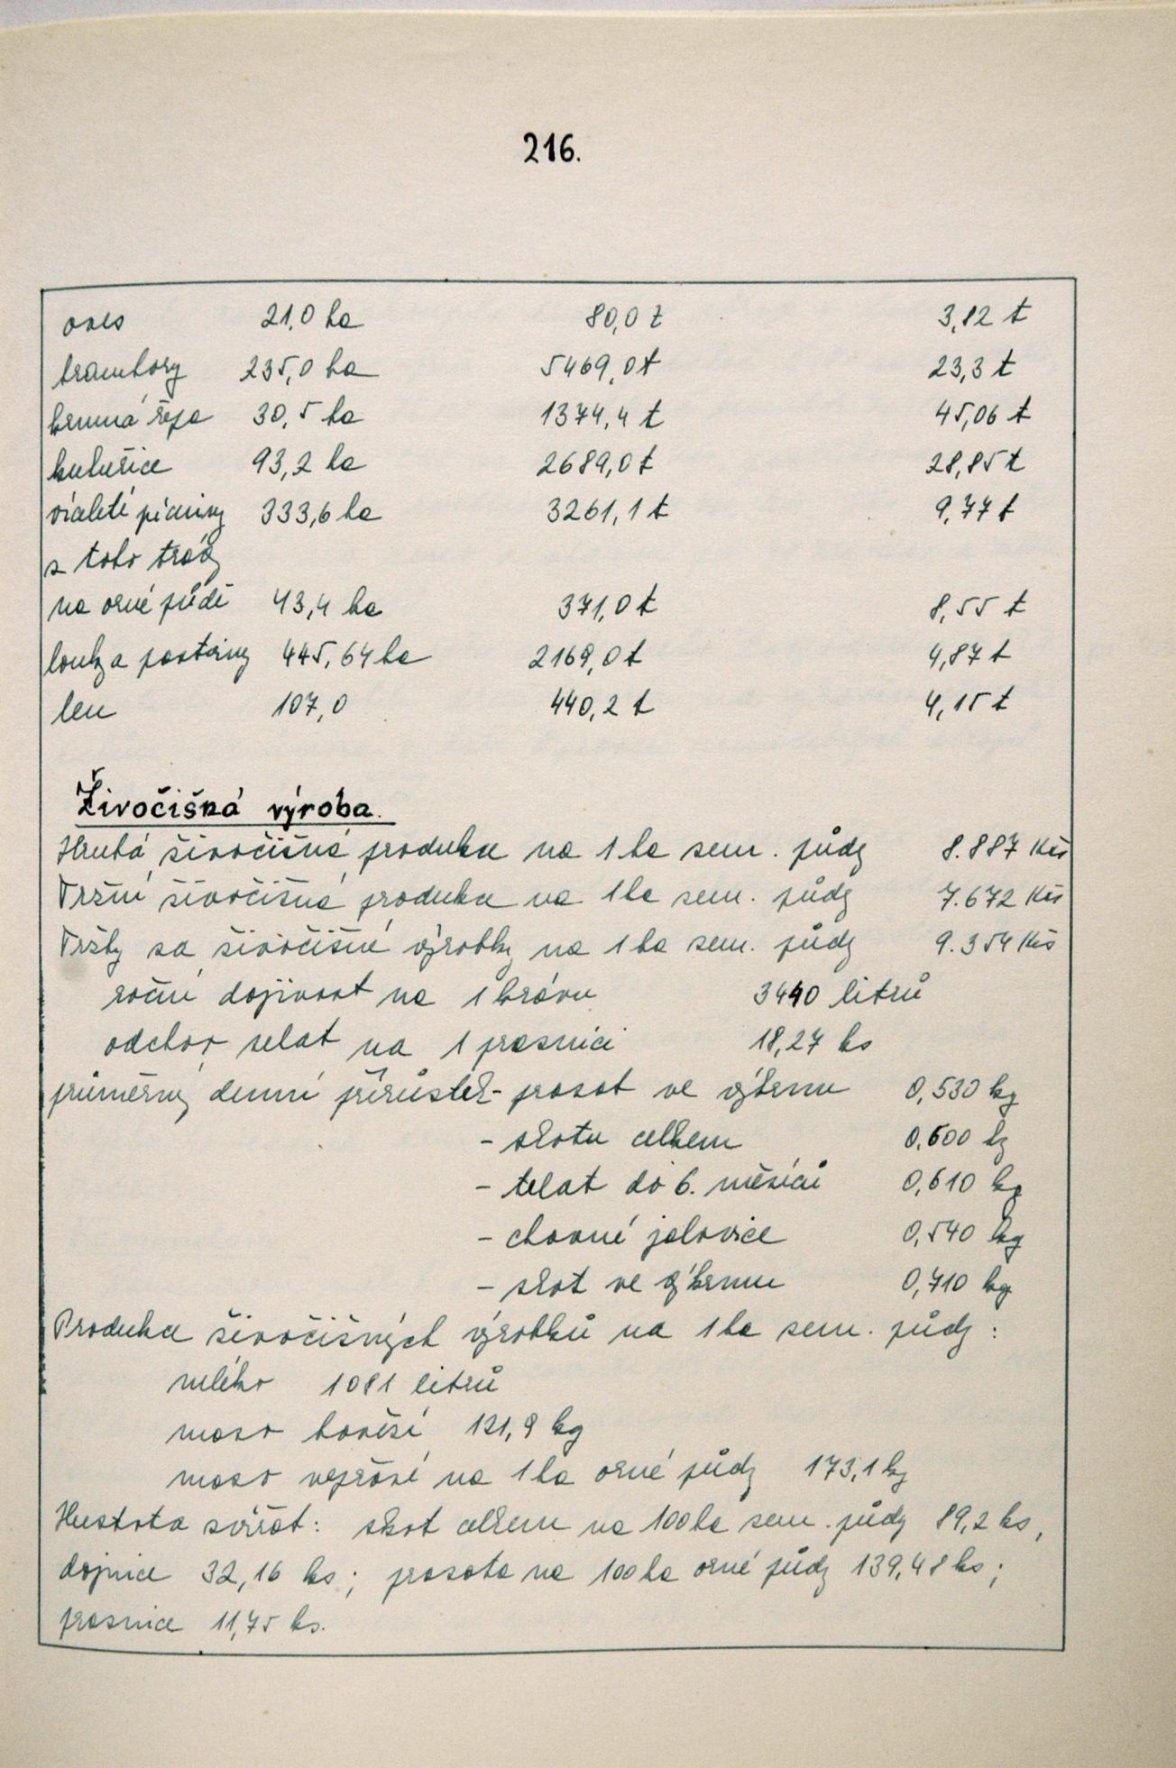 216.
oves 21,0 ha 80,0 t 3,82 t
brambory 235,0 ha 5469,0 t 23,3 t
krmná řepa 30,5 ha 1374,4 t 45,06 t
kukuřice 93,2 ha 2689,0 t 28,85 t
víceleté pícniny 333,6 ha 3261,1 t 9,77 t
z toho trávy
na orné půdě 43,4 ha 371,0 t 8,55 t
louky a pastviny 445,64 ha 2169,0 t 4,87 t
len 107,0 440,2 t 4,15 t
Živočišná výroba.
Hrubá živočišná produkce na 1 ha zem. půdy 8.887 Kčs
Tržní živočišná produkce na 1 ha zem. půdy 7.672 Kčs
Tržby za živočišné výrobky na 1 ha zem. půdy 9.354 Kčs
roční dojivost na 1 krávu 3440 litrů
odchov selat na 1 prasnici 18,27 ks
průměrný denní přírůstek - prasat ve výkrmu 0,530 kg
- skotu celkem 0,600 kg
- telat do 6. měsíců 0,610 kg
- chovné jalovice 0,540 kg
- skot ve výkrmu 0,710 kg
Produkce živočišných výrobků na 1 ha zem. půdy :
mléko 1081 litrů
maso hovězí 121,9 kg
maso vepřové na 1 ha orné půdy 173,1 kg
Hustota zvířat : skot celkem na 100 ha zem. půdy 89,2 ks,
dojnice 32,16 ks ; prasata na 100 ha orné půdy 139,48 ks ;
prasnice 11,75 ks.